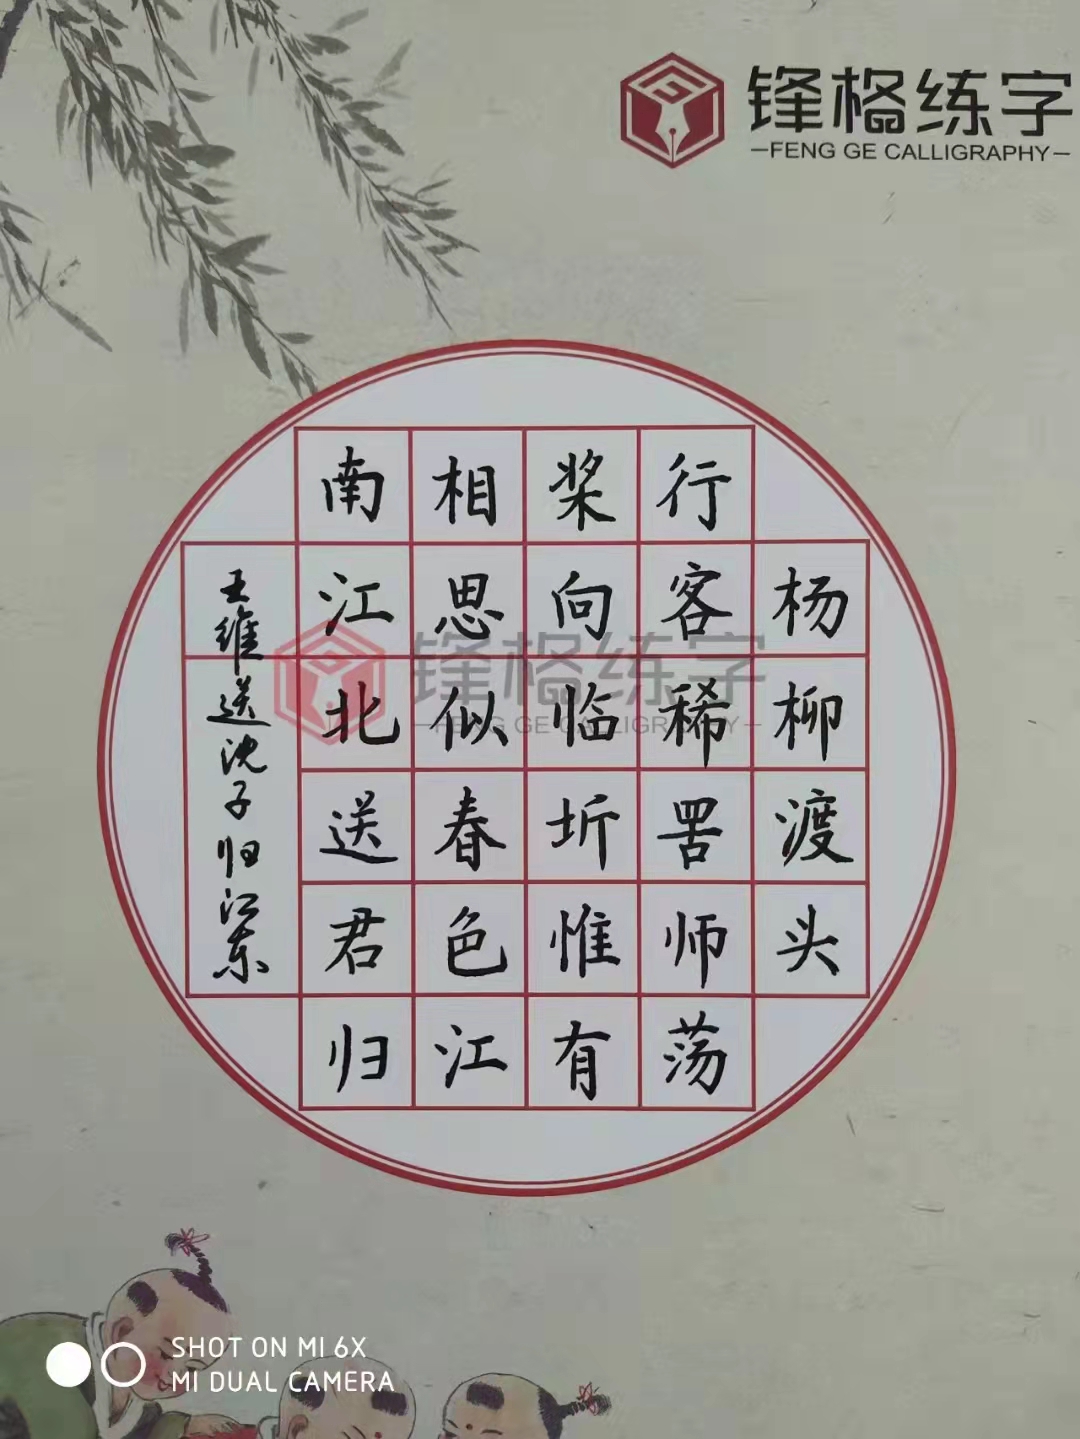 锋格练字
FENG GE CALLIGRAPHY
杨柳渡头
行客稀罟师荡
桨向临圻惟有
相思似春色江
南江北送君归
王维送沈子归江东
锋格练字
FENG GE CALLIGRAPHY
SHOT ON MI 6X
MI DUAL CAMERA